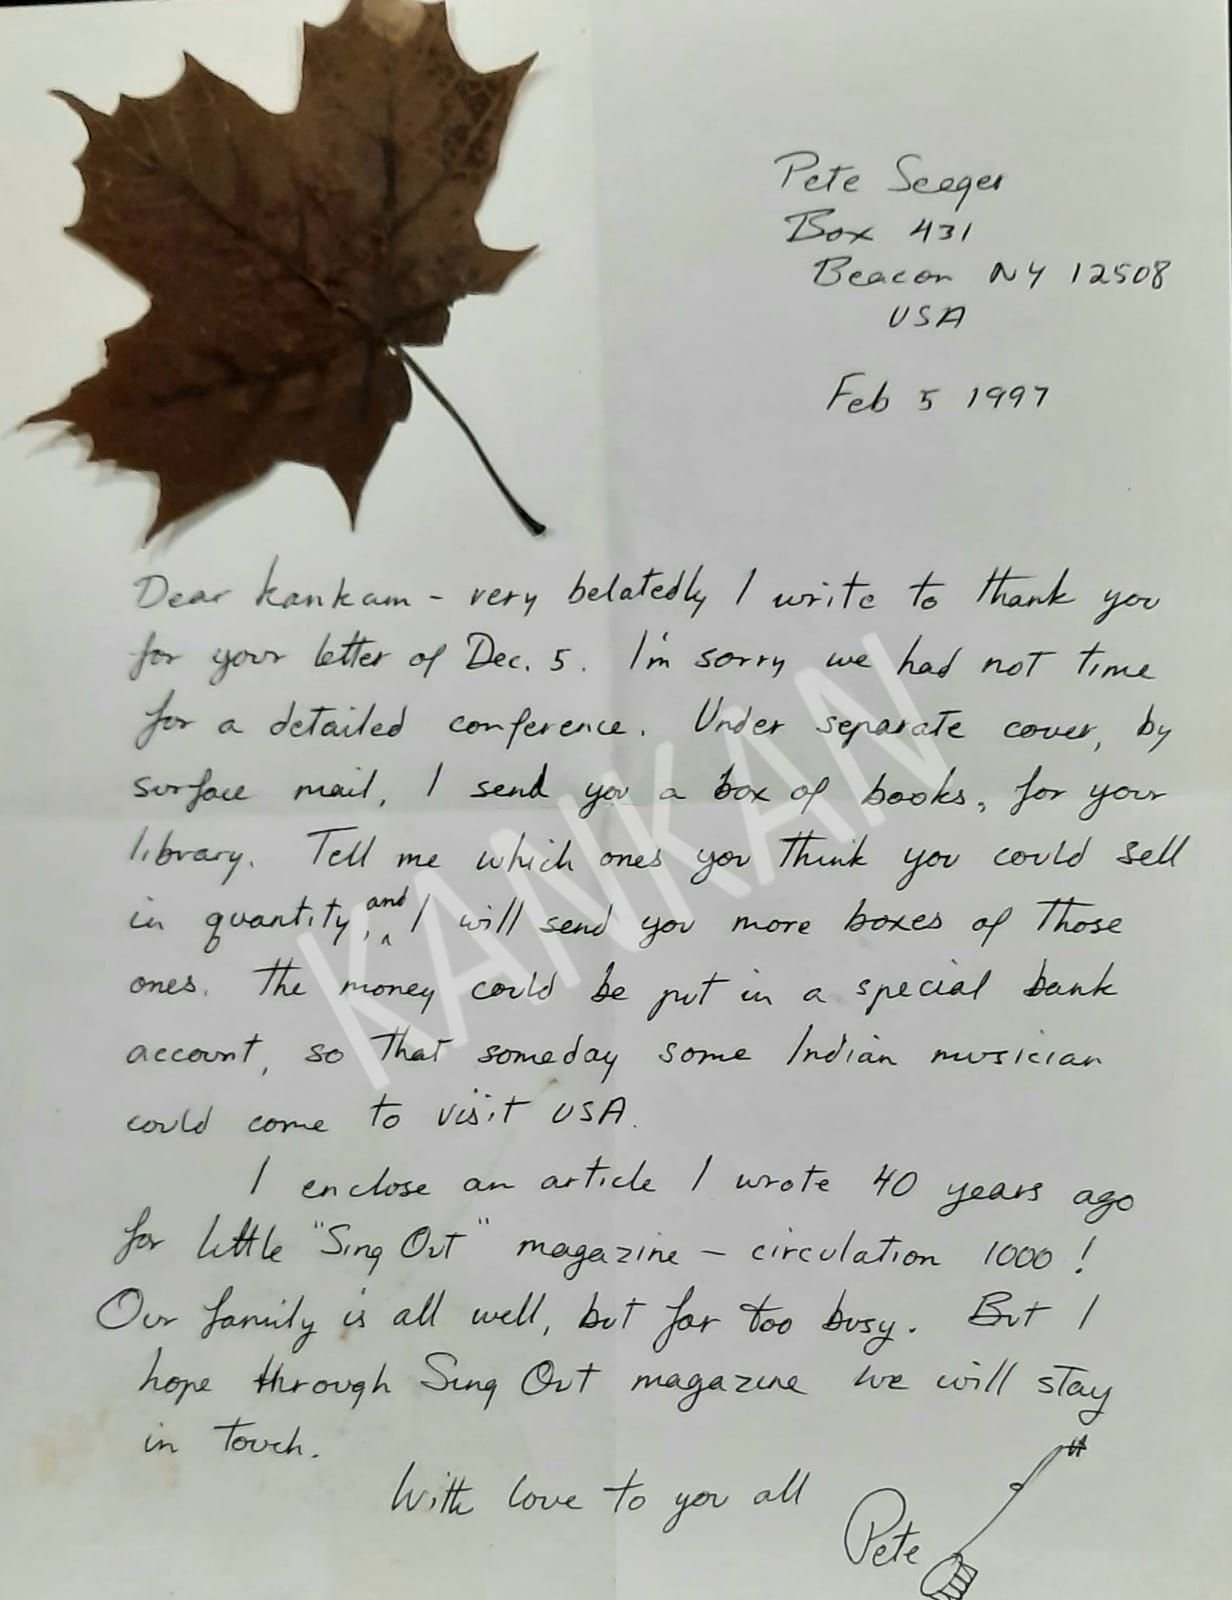 Pete Seeger
Box 431
Beacon NY 12508
USA
Feb 5 1997
Dear Kankam - very belatedly I write to thank you
for your letter of Dec. 5. I'm sorry we had not time
for a detailed conference. Under separate cover, by
surface mail, I send you a box of books, for your
library. Tell me which ones you think you could sell
in quantity, and I will send you more boxes of those
ones. The money could be put in a special bank
account, so that someday some Indian musician
could come to visit USA.
I enclose an article I wrote 40 years ago
for little "Sing Out" magazine - circulation 1000!
Our family is all well, but far too busy. But I
hope through Sing Out magazine we will stay
in touch.
With love to you all
Pete
KANKAN